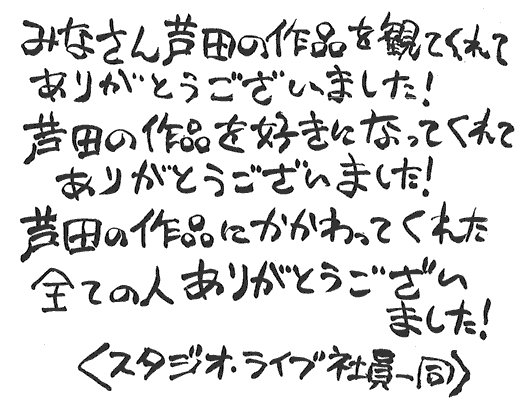 みなさん芦田の作品を観てくれて
ありがとうございました!
芦田の作品を好きになってくれて
ありがとうございました!
芦田の作品にかかわってくれた
全ての人ありがとうござい
ました!
〈スタジオ・ライブ社員一同〉